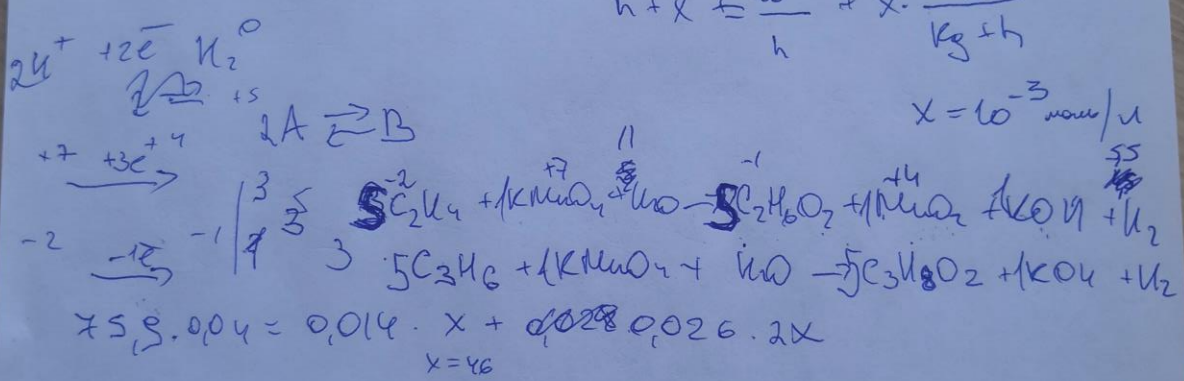 h + x = /h + x · /kg + h
2H⁺ +2e⁻ H₂⁰
+5
2A ⇄ B
x = 10⁻³ моль/л
+7 +3e +4 | 3 5
-2 -1e -1 | 1 3 3
-2 +7 11 -1 +4 55
5C₂H₄ + 1KMnO₄ + H₂O → 5C₂H₆O₂ + 1MnO₂ + 1KOH + H₂
5C₃H₆ + 1KMnO₄ + H₂O → 5C₃H₈O₂ + 1KOH + H₂
75,9·0,04 = 0,014 · x + 0,026 · 2x
x = 46